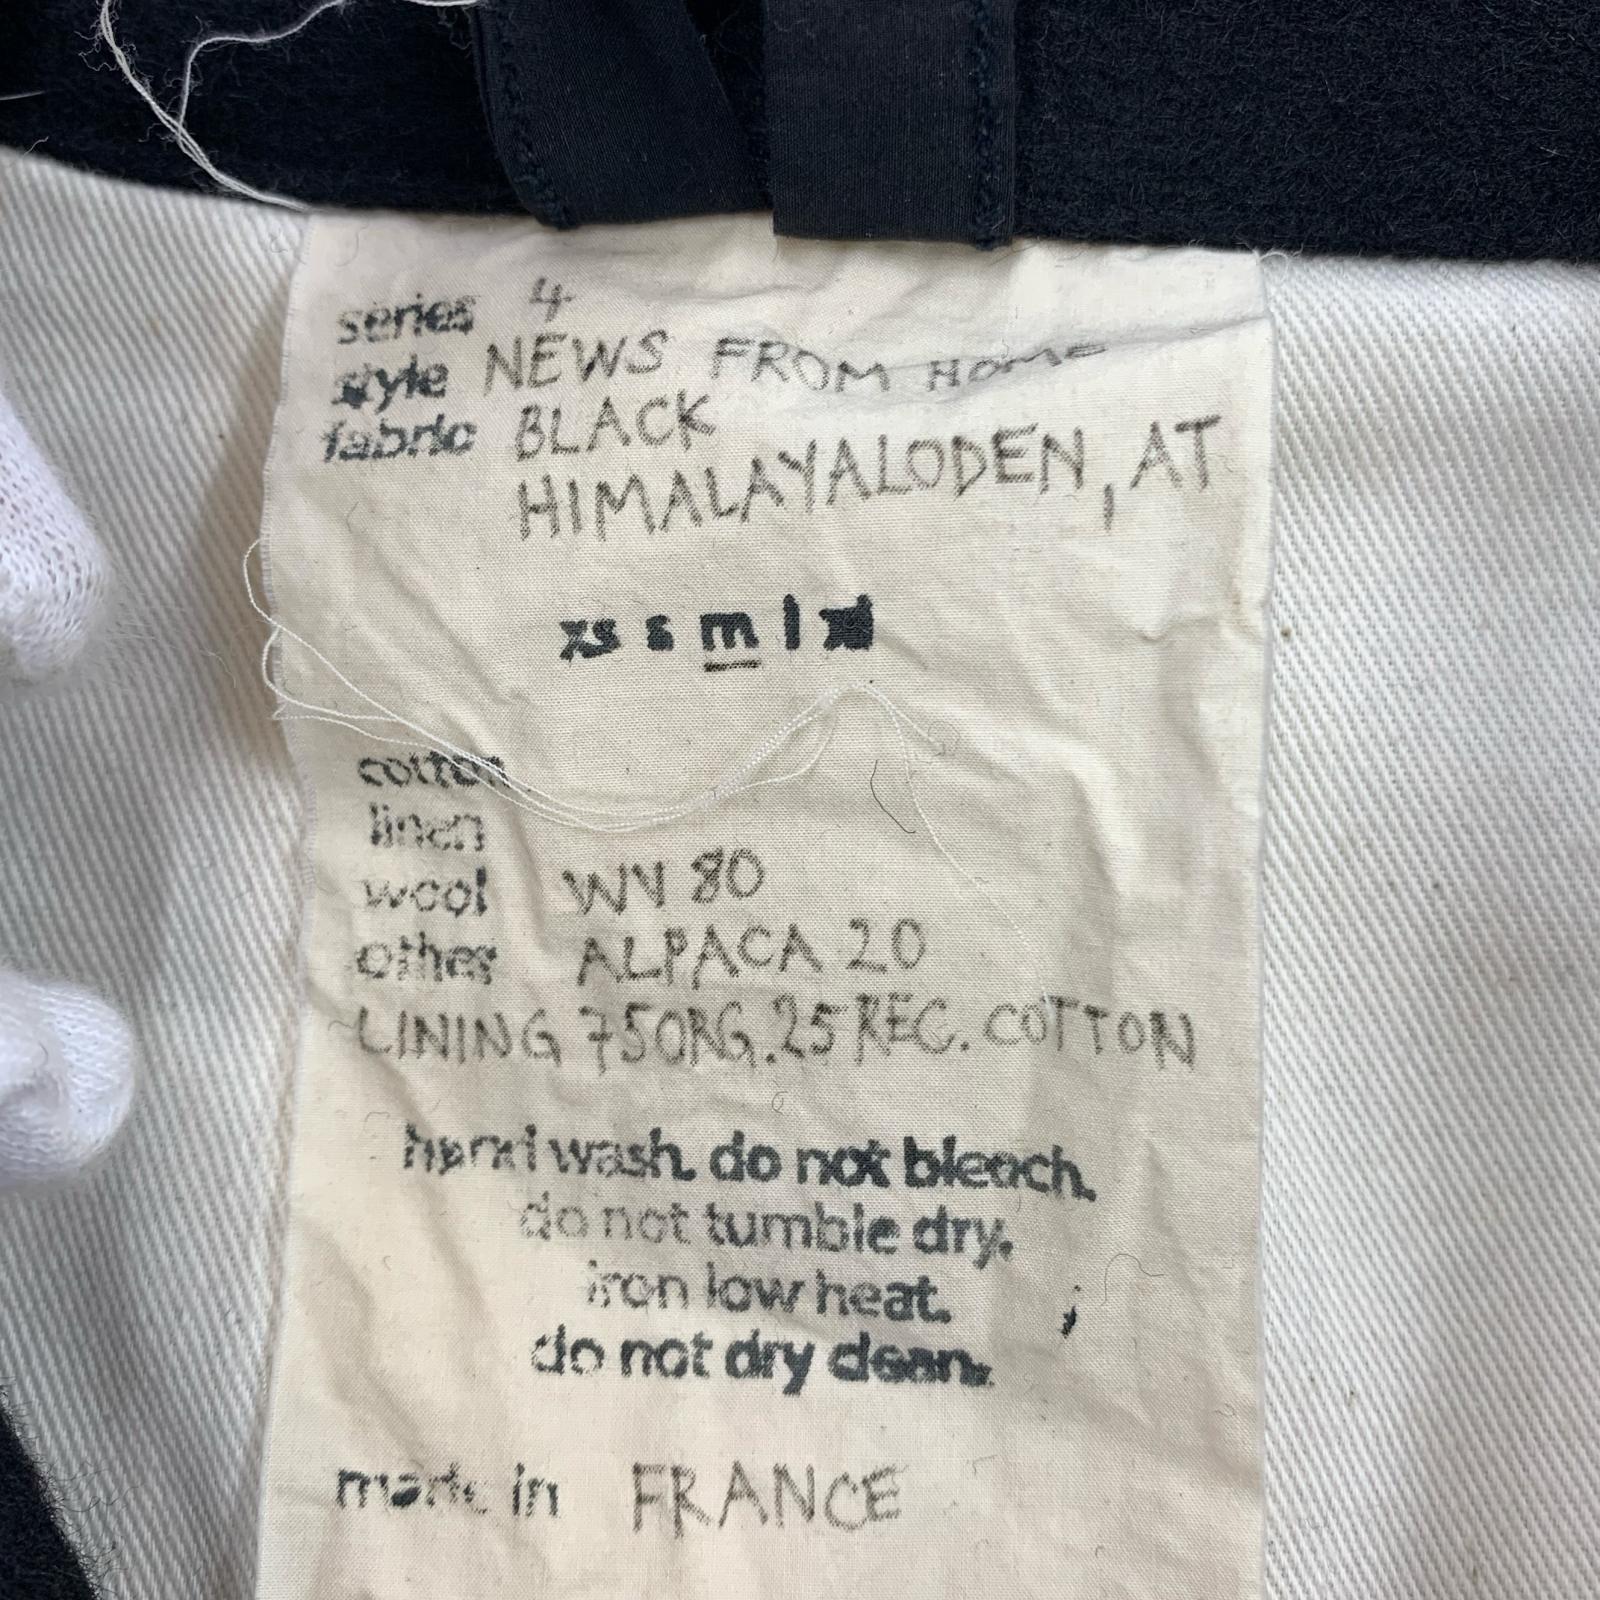 series 4
style NEWS FROM HOME
fabric BLACK
HIMALAYALODEN, AT
xs s m l xl
cotton
linen
wool WV 80
other ALPACA 20
LINING 75 ORG. 25 REC. COTTON
hand wash. do not bleach.
do not tumble dry.
iron low heat.
do not dry clean.
made in FRANCE